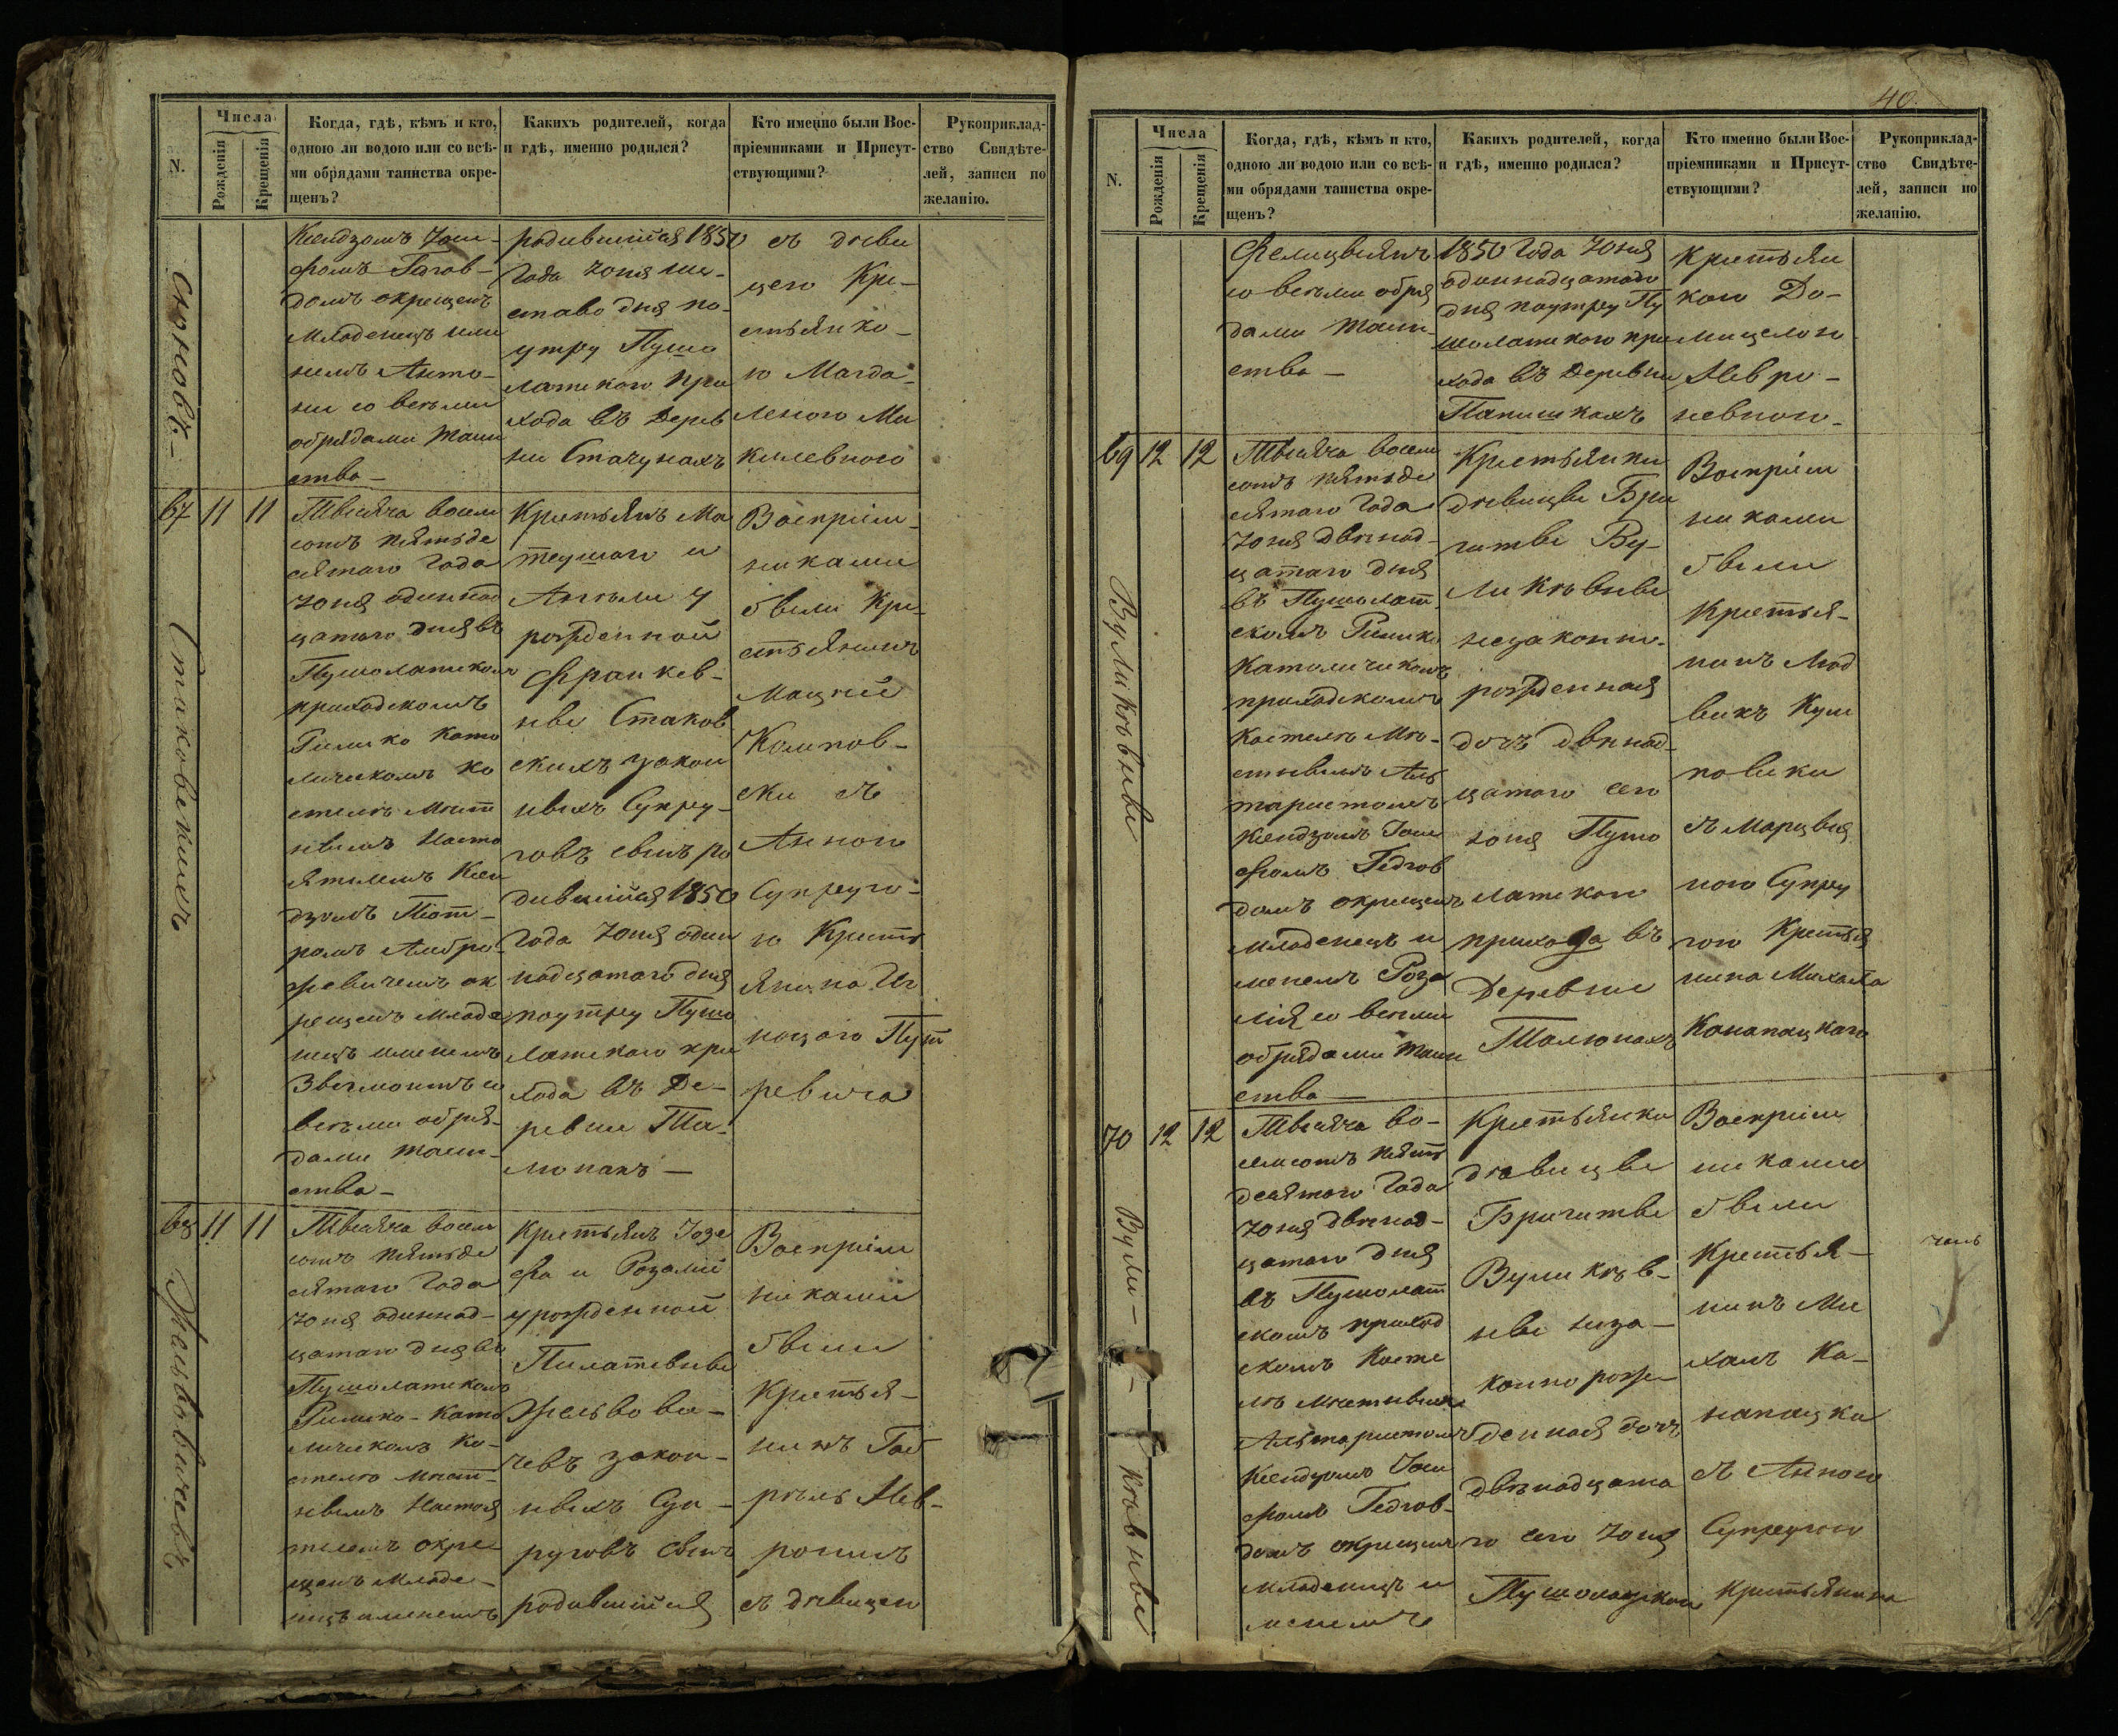 N.
Числа
Рожденія
Крещенія
Когда, гдѣ, кѣмъ и кто,
одною ли водою или со всѣ-
ми обрядами таинства окре-
щенъ?
Какихъ родителей, когда
и гдѣ, именно родился?
Кто именно были Вос-
пріемниками и Присут-
ствующими?
Рукоприклад-
ство Свидѣте-
лей, записи по
желанію.
Ксендзомъ Іоси-
фомъ
домъ окрещенъ
Младенецъ име-
немъ Анто-
ни со всѣми
обрядами таин
ства —
родившійся 1850
Года Юня ше-
ставо дня по-
утру Пушо
латскаго при
хода въ Дерев
ни Стачунахъ
съ дѣви
цею Кре-
стьянко-
ю Магда-
леною Ми
67 11 11
Стаковскихъ
Тысяча восем
сотъ пятьде
сятого Года
Юня одиннад
цатого дня въ
Пушолатскомъ
приходскомъ
Римско Като
лическомъ ко
стелѣ мѣст
нымъ насто
ятелемъ Ксен
дзомъ Піот-
ромъ Амбро-
жевичемъ ок
рещенъ младе
нецъ именемъ
со
всѣми обря-
дами таин-
ства —
Крестьянъ Ма
теушаго и
Анѣли у
рожденной
Франкев-
ны Стаков
скихъ закон
ныхъ Супру-
говъ сынъ ро
дившійся 1850
Года Юня один
надцатого дня
поутру Пушо
латскаго при
хода въ Де-
ревни Ша-
люнахъ —
Воспріем-
никами
были Кре-
стьянинъ
Мацѣй
съ
Анною
Супруго-
ю Кресть
янина Иг
нацаго
ревича
68 11 11
Тысяча восем
сотъ пятьде
сятого Года
Юня одиннад-
цатаго дня въ
Пушолатскомъ
Римско-Като
лическомъ Ко-
стелѣ мѣст-
нымъ Настоя
телемъ окре
щенъ младе-
нецъ именемъ
Крестьянъ Юзе
фа и Розаліи
урожденной
закон-
ныхъ Суп-
руговъ сынъ
родившійся
Воспріем
никами
были
Крестья-
нинъ Габ
ріель Нев-
ронимъ
съ дѣвицею
40.
N.
Числа
Рожденія
Крещенія
Когда, гдѣ, кѣмъ и кто,
одною ли водою или со всѣ-
ми обрядами таинства окре-
щенъ?
Какихъ родителей, когда
и гдѣ, именно родился?
Кто именно были Вос-
пріемниками и Присут-
ствующими?
Рукоприклад-
ство Свидѣте-
лей, записи по
желанію.
со всѣми обря
дами таин-
ства —
1850 Года Юня
одиннадцатого
дня поутру Пу
шолатскаго при
хода въ Деревни
Крестьян
кою До-
мицелою
Невро-
невною-
69 12 12
Вуликѣвны
Тысяча восем
сотъ пятьде
сятаго Года
Юня двѣнад-
цатаго дня
въ Пушолат
скомъ Римско
Католическомъ
приходскомъ
Костелѣ мѣ-
стнымъ Аль
таристомъ
Ксендзомъ Іоси
фомъ Гедгов
домъ окрещенъ
младенецъ и
менемъ Роза
лія со всѣми
обрядами таин
ства —
Крестьянки
дѣвицы Бри
гиты Ву-
ликѣвны
незаконно-
рожденная
дочь двѣнад-
цатаго сего
юня Пушо
латскаго
прихода въ
Деревни
Шалюнахъ
Воспріем
никами
были
Крестья-
нинъ Люд
викъ
съ
ною Супру
гою Крестья
нина Михаила
Канапацкаго
70 12 12
Вули-
кѣвны
Тысяча во-
семсотъ пять
десятого Года
Юня двѣнад-
цатаго дня
въ Пушолат
скомъ приход
скомъ Косте
лѣ мѣстнымъ
Альтаристомъ
Ксендзомъ Іоси
фомъ Гедгов-
домъ окрещенъ
младенецъ и
менемъ
Крестьянки
дѣвицы
Бригиты
Вуликѣв-
ны неза-
конно рож-
денная дочь
двѣнадцата
го сего Юня
Воспріем
никами
были
Крестья-
нинъ Ми
халъ Ка-
напацки
съ Анною
Супругою
Крестьянина